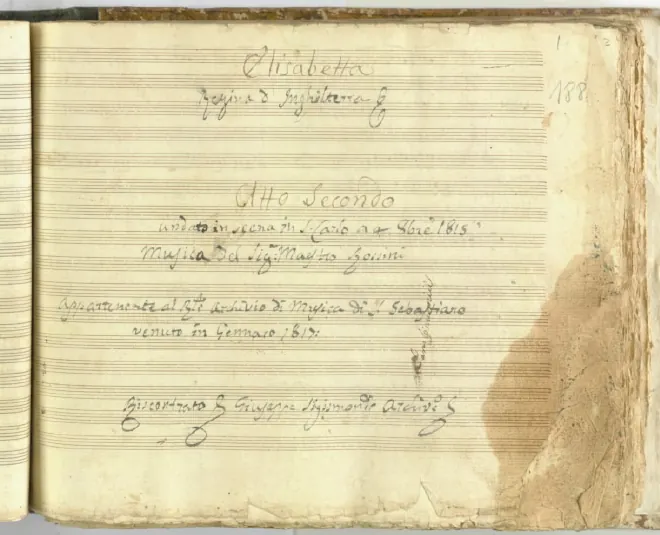 Elisabetta
Regina d'Inghilterra
Atto Secondo
andato in scena in S. Carlo a 4 8bre 1815
Musica Del Sigr Maestro Rossini
Appartenente al Rle Archivio di Musica di S. Sebastiano
venuto in Gennaro 1817:
Riscontrato Giuseppe Sigismondo Archivo
1
188